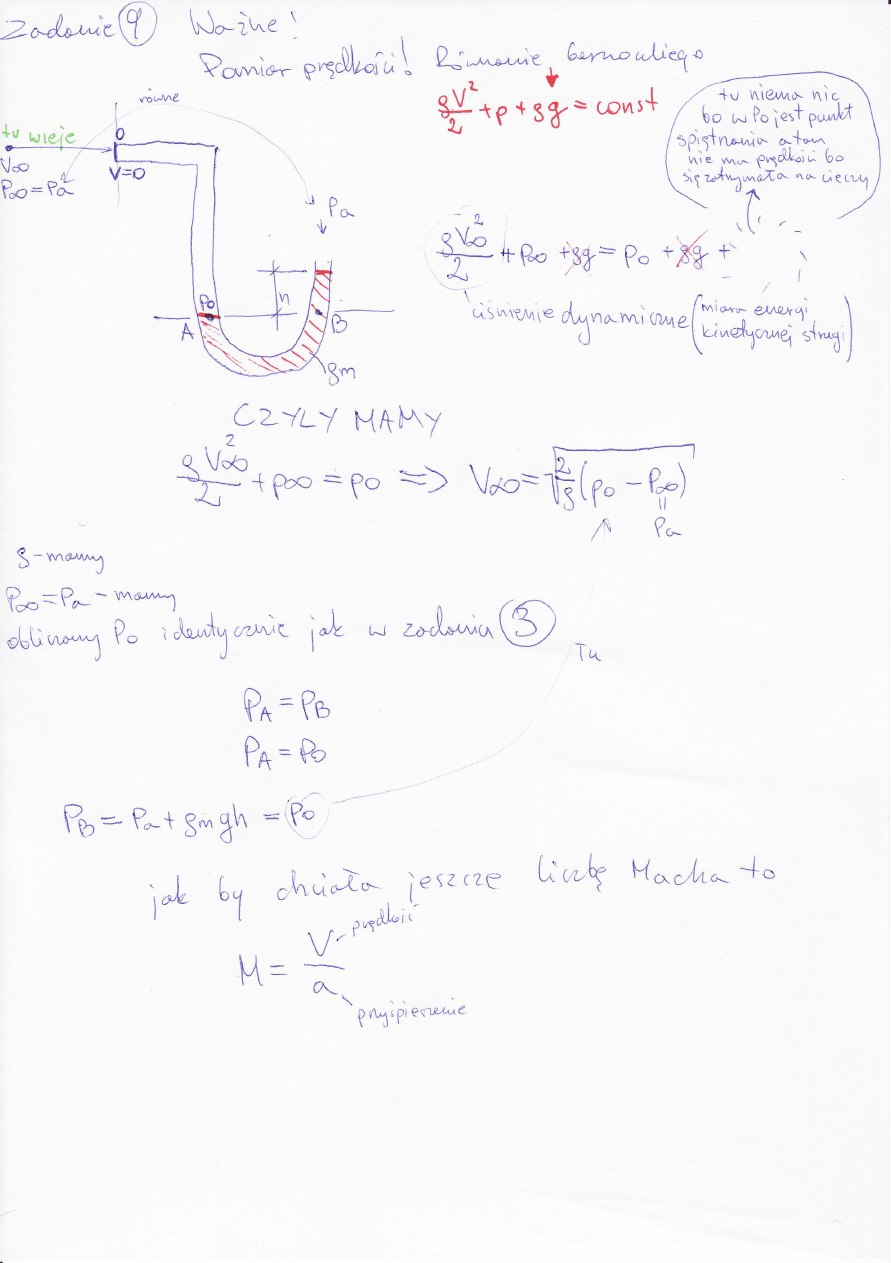 Zadanie 9 Ważne!
Pomiar prędkości! Równanie bernouliego
ρV²/2 + p + ρg = const
równe
tu wieje
0
V∞
V=0
P∞=Pa
Pa
tu niema nic
bo w Po jest punkt
spiętrzenia a tam
nie ma prędkości bo
się zatrzymała na cieczy
ρV∞²/2 + p∞ + ρg = po + ρg +
ciśnienie dynamiczne (miara energi
kinetycznej strugi)
Po
h
A
B
ρm
CZYLY MAMY
ρV∞²/2 + p∞ = po => V∞ = √(2/ρ (po - P∞))
=
Pa
ρ - mamy
P∞ = Pa - mamy
obliczamy Po identycznie jak w zadaniu 3
Tu
PA = PB
PA = Po
PB = Pa + ρm gh = Po
jak by chciała jeszcze liczbę Macha to
M = V/a
prędkość
przyśpieszenie